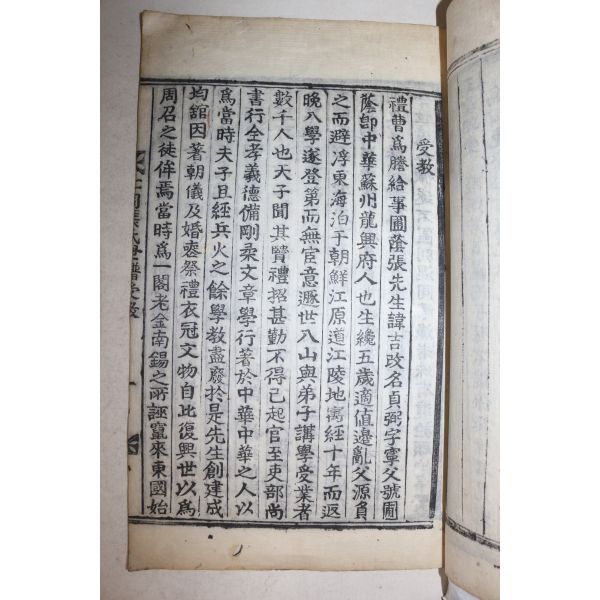 受教
禮曹爲謄給事圃蔭張先生諱吉改名貞弼字寧父號圃
蔭卽中華蘇州龍興府人也生纔五歲適值邊亂父源負
之而避浮東海泊于朝鮮江原道江陵地寓經十年而返
晩入學遂登第而無宦意遯世入山與弟子講學受業者
數千人也天子聞其賢禮招甚勤不得已起官至吏部尙
書行全孝義德備剛柔文章學行著於中華中華之人以
爲當時夫子且經兵火之餘學敎盡廢於是先生創建成
均舘因著朝儀及婚喪祭禮衣冠文物自此復興世以爲
周召之徒侔焉當時爲一閣老金南錫之所誣竄來東國始
張氏
譜受敎